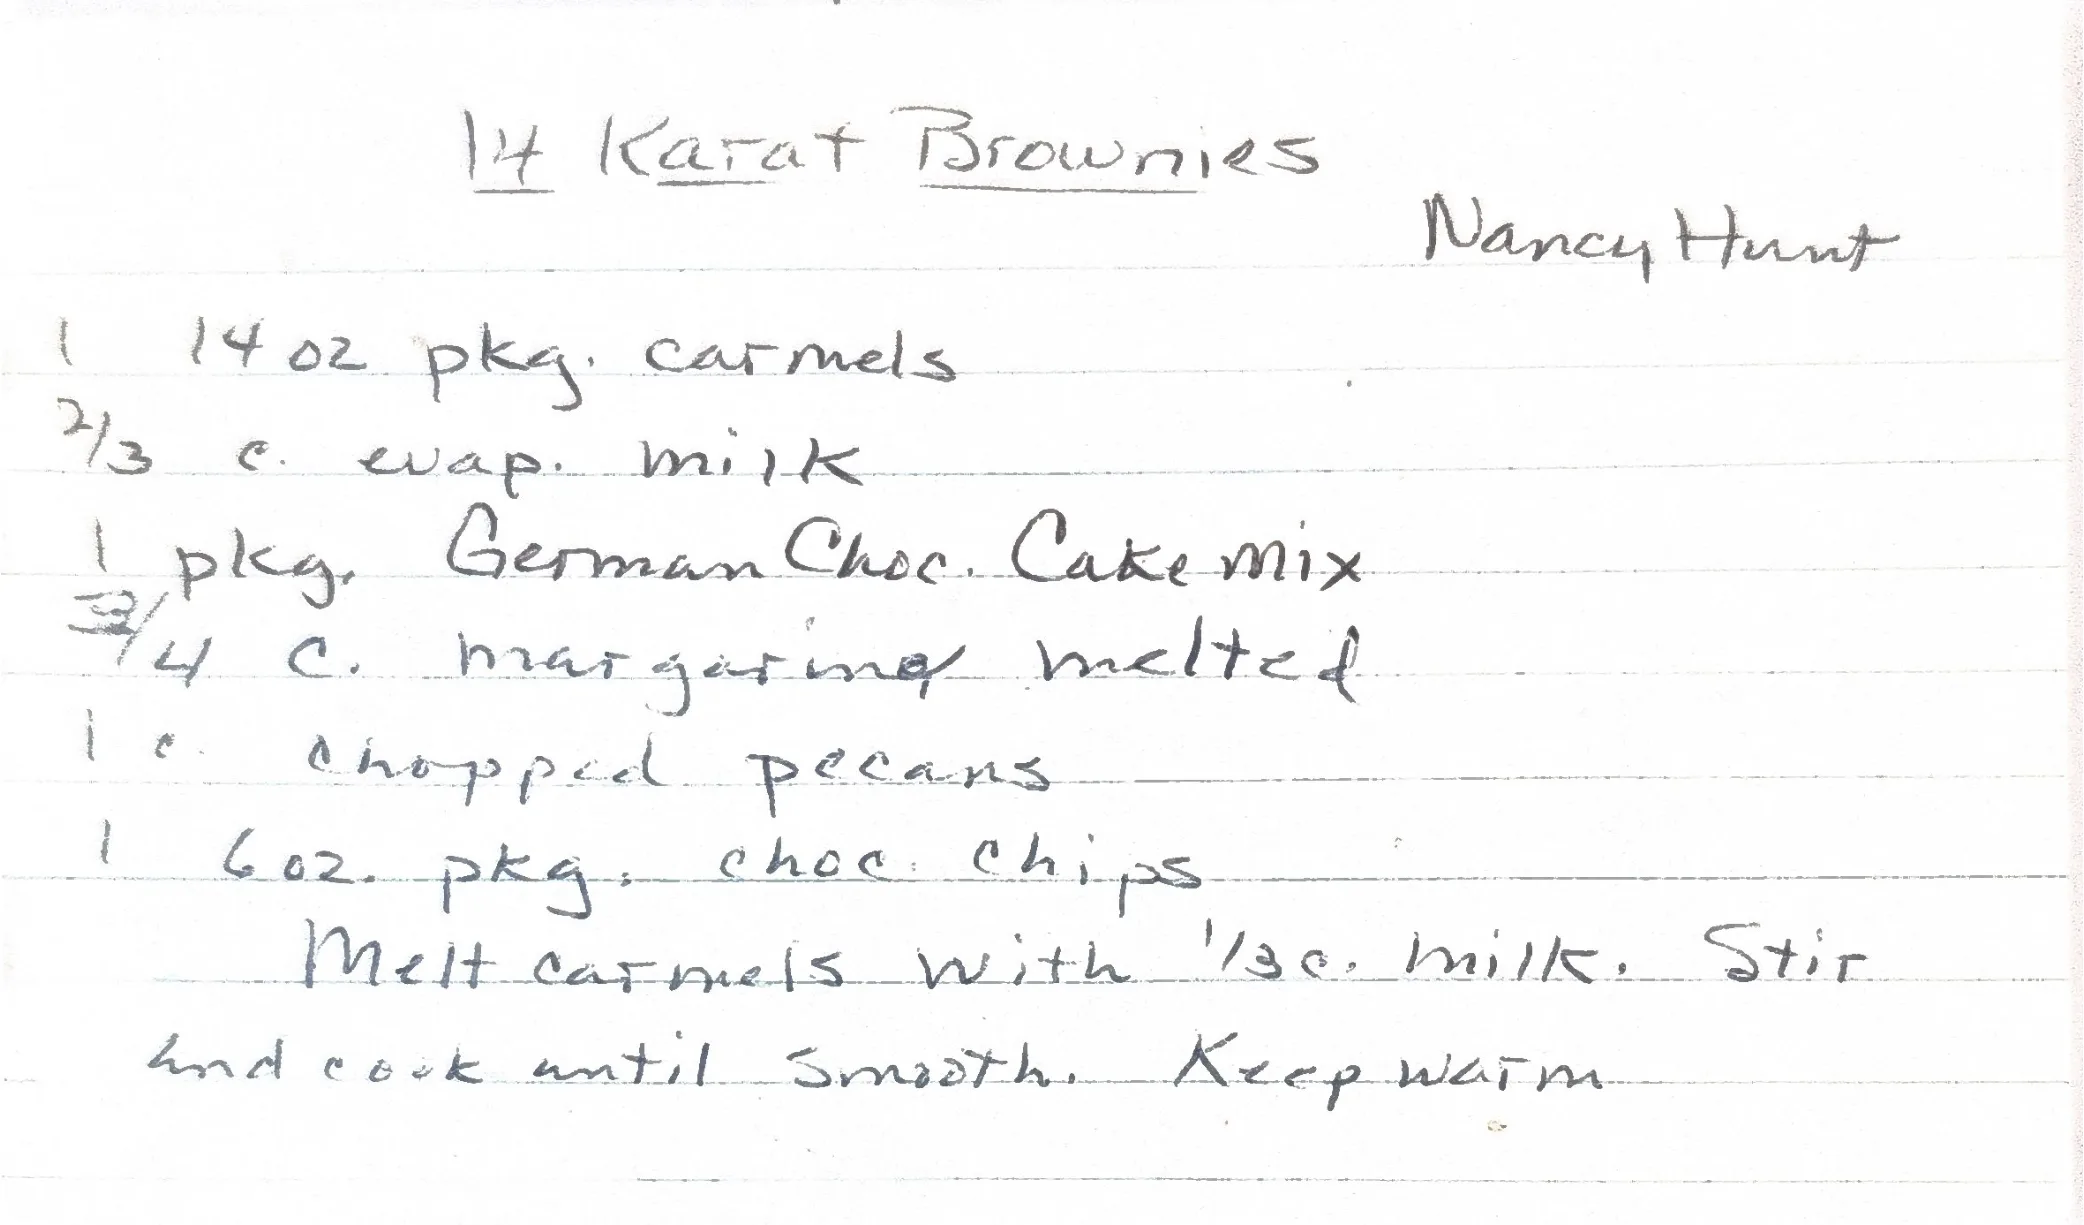 14 Karat Brownies
Nancy Hunt
1 14 oz pkg. carmels
2/3 c. evap. milk
1 pkg. German Choc. Cake mix
3/4 c. margarine melted
1 c. chopped pecans
1 6 oz. pkg. choc. chips
Melt carmels with 1/3 c. milk. Stir
and cook until smooth. Keep warm